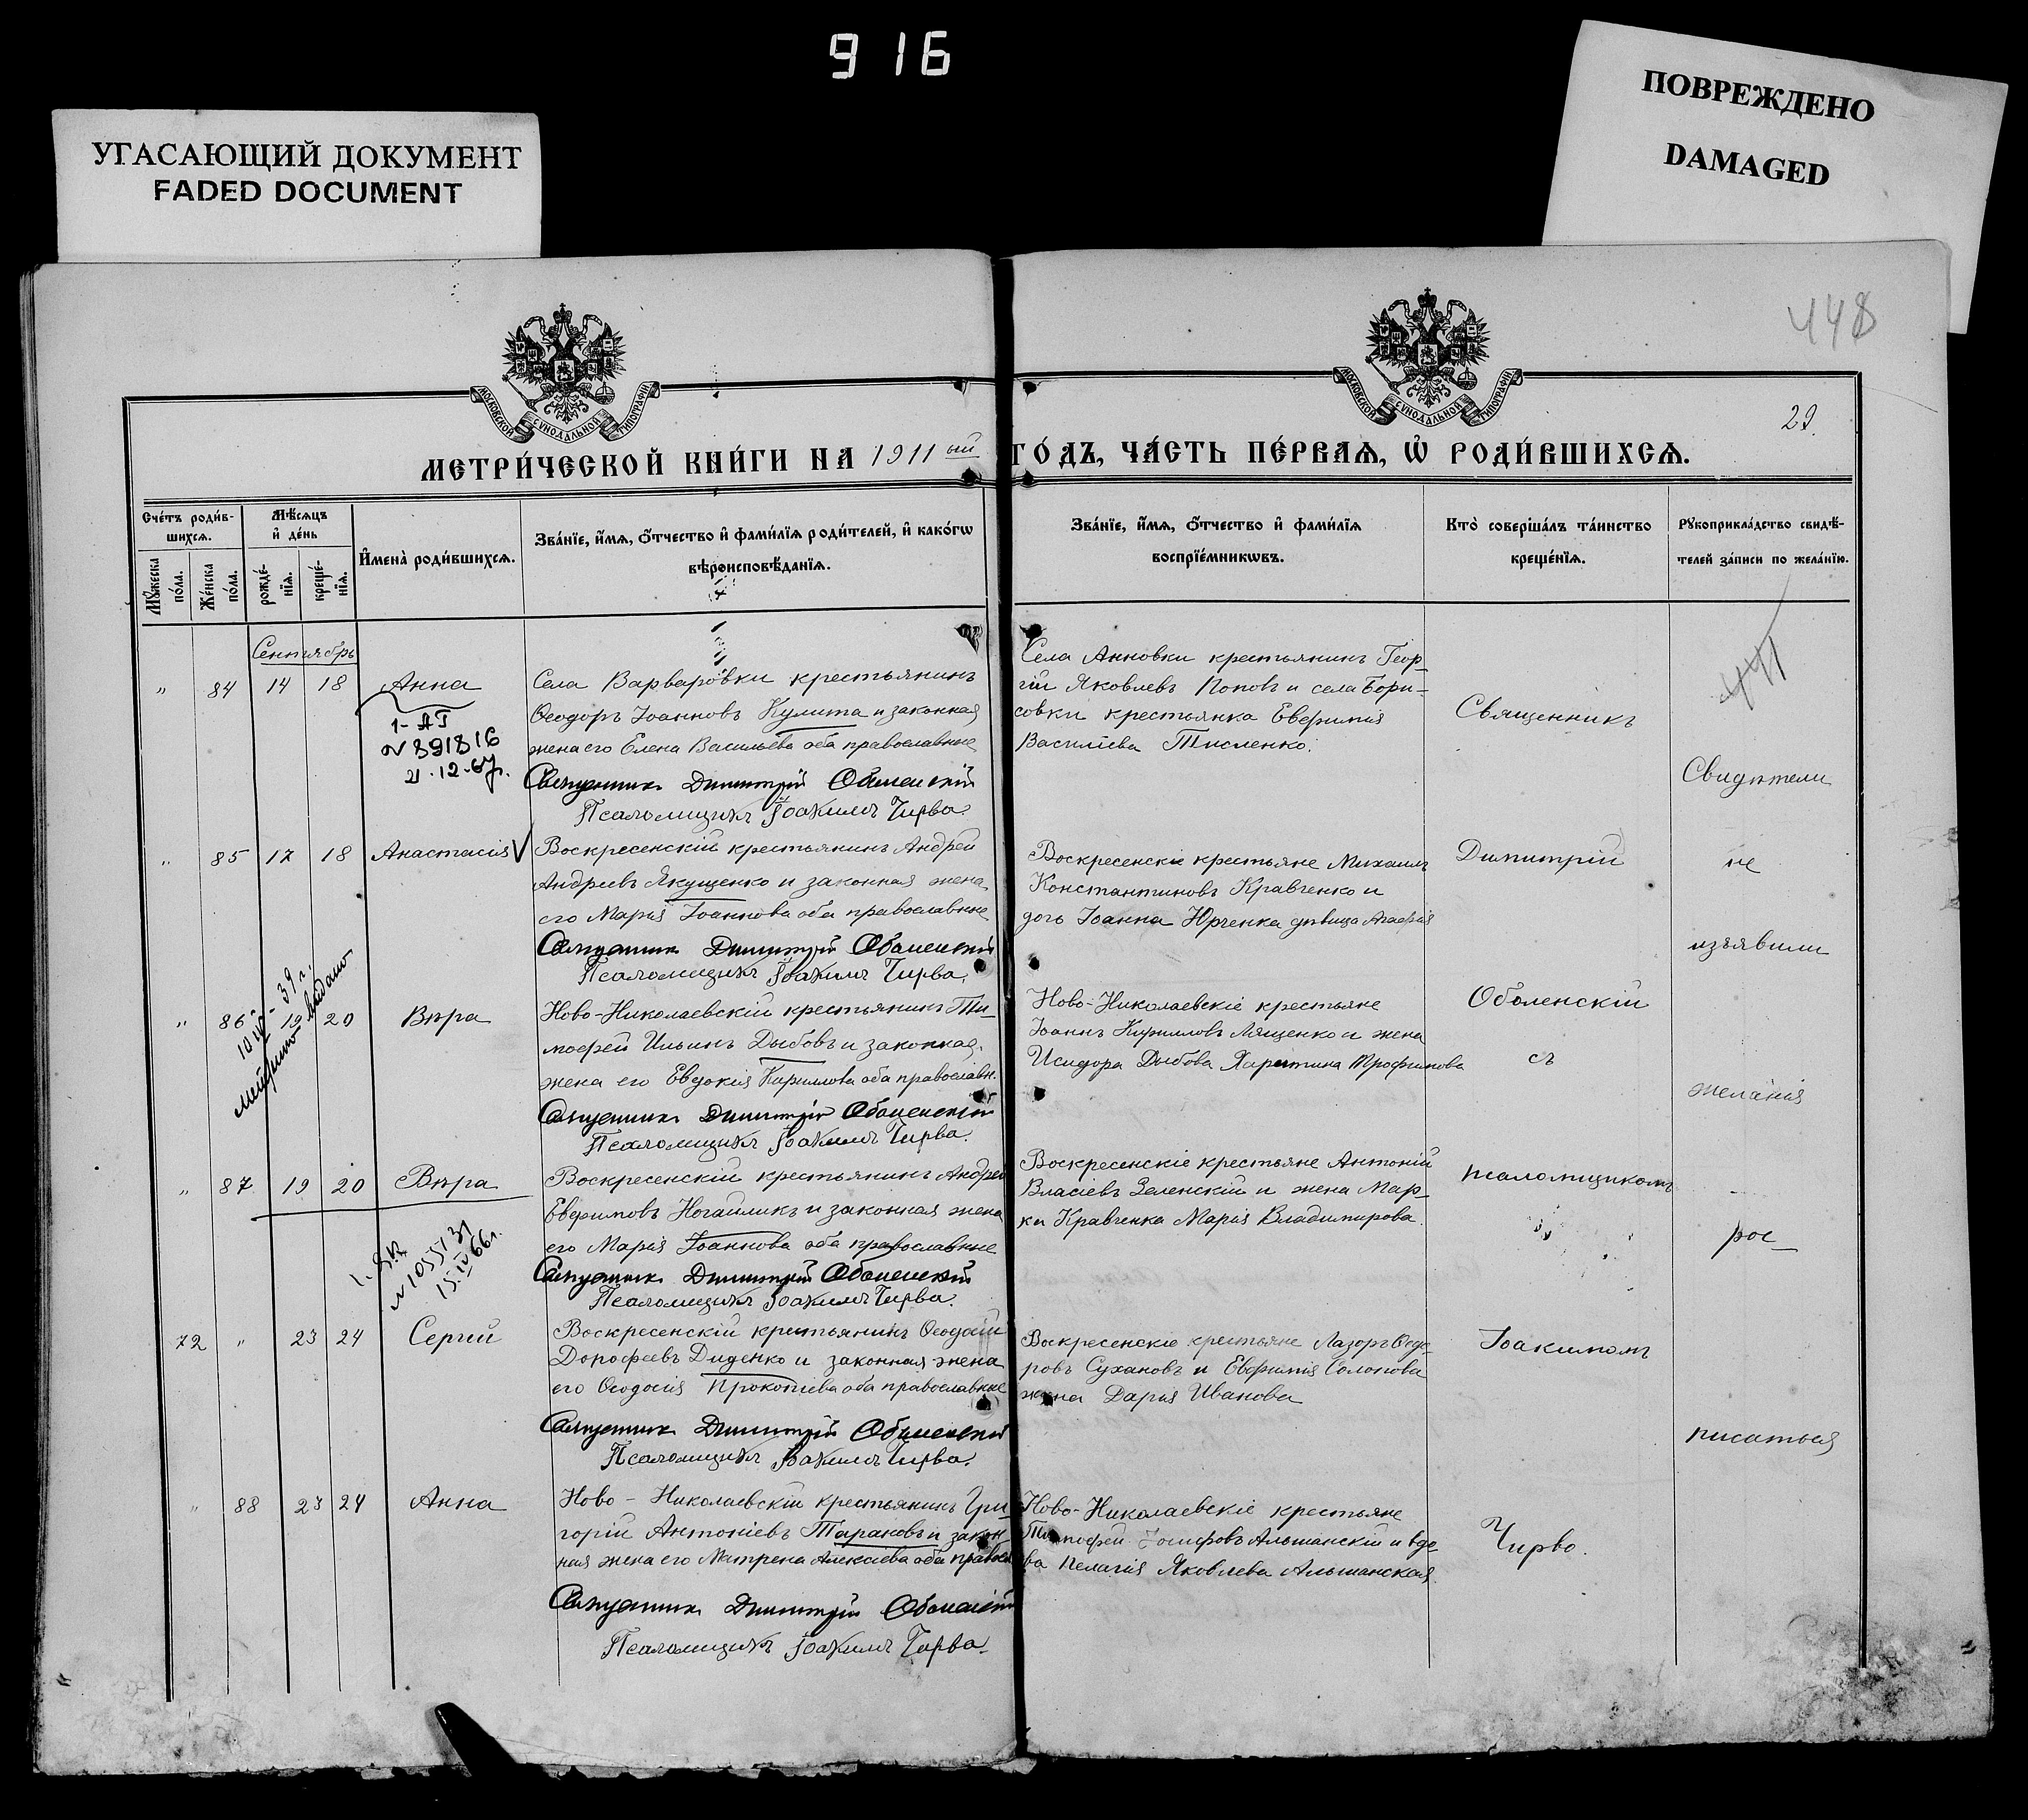 916
УГАСАЮЩИЙ ДОКУМЕНТ
FADED DOCUMENT
ПОВРЕЖДЕНО
DAMAGED
448
29.
МОСКОВСКОЙ СУНОДАЛЬНОЙ ТИПОГРАФІИ
МОСКОВСКОЙ СУНОДАЛЬНОЙ ТИПОГРАФІИ
МЕТРИ́ЧЕСКОЙ КНИ́ГИ НА 1911 ый ГО́ДЪ, ЧА́СТЬ ПЕ́РВАѦ, Ѡ҆ РОДИ́ВШИХСѦ.
Сче́тъ роди́в-
шихсѧ.
Мꙋ́жеска по́ла.
Же́нска по́ла.
Мѣ́сѧцъ и҆ де́нь
рожде́-нїѧ.
креще́-нїѧ.
И҆мена̀ роди́вшихсѧ.
Зва́нїе, и҆́мѧ, ѻ҆́тчество и҆ фами́лїѧ роди́телей, и҆ како́гѡ
вѣроисповѣ́данїѧ.
Зва́нїе, и҆́мѧ, ѻ҆́тчество и҆ фами́лїѧ
воспрїе́мникѡвъ.
Кто̀ соверша́лъ та́инство
креще́нїѧ.
Рꙋкоприкла́дство свидѣ́-
телей за́писи по жела́нїю.
Сентябрь
" 84 14 18 Анна
1-АГ
N 891816
21.12.67г.
Села Варваровки крестьянинъ
Ѳеодоръ Іоанновъ Кулита и законная
жена его Елена Васильева оба православные
Священникъ Димитрій Оболенскій
Псаломщикъ Іоакимъ Чирва.
Села Анновки крестьянинъ Геор-
гій Яковлевъ Поповъ и села Бори-
совки крестьянка Евфимія
Василіева Тисленко.
" 85 17 18 Анастасія V
Воскресенскій крестьянинъ Андрей
Андреевъ Якущенко и законная жена
его Марія Іоаннова оба православные
Священникъ Димитрій Оболенскій
Псаломщикъ Іоакимъ Чирва.
Воскресенскіе крестьяне Михаилъ
Константиновъ Кравченко и
дочь Іоанна Юрченка дѣвица Агафія
" 86 19 20 Вѣра
39 г.
выдано
Ново-Николаевскій крестьянинъ Ти-
мофей Ильинъ Дыбовъ и законная
жена его Евдокія Кириллова оба православн.
Священникъ Димитрій Оболенскій
Псаломщикъ Іоакимъ Чирва.
Ново-Николаевскіе крестьяне
Іоаннъ Кирилловъ Мященко и жена
Исидора Дыбова Харитина Трофимова
" 87 19 20 Вѣра
N 1055131
15.IV 66г.
Воскресенскій крестьянинъ Андрей
Евфимовъ Ногайликъ и законная жена
его Марія Іоаннова оба православные
Священникъ Димитрій Оболенскій
Псаломщикъ Іоакимъ Чирва.
Воскресенскіе крестьяне Антоній
Власіевъ Зеленскій и жена Мар-
ки Кравченка Марія Владимирова.
72 " 23 24 Сергій
Воскресенскій крестьянинъ Ѳеодосій
Дорофеевъ Диденко и законная жена
его Ѳеодосія Прокопіева оба православные
Священникъ Димитрій Оболенскій
Псаломщикъ Іоакимъ Чирва.
Воскресенскіе крестьяне Лазоръ Ѳедо-
ровъ Сухановъ и Евфимія Солонова
жена Дарія Иванова
" 88 23 24 Анна
Ново-Николаевскій крестьянинъ Гри-
горій Антоніевъ Тарановъ и закон
ная жена его Матрена Алексіева оба правосл
Священникъ Димитрій Оболенскій
Псаломщикъ Іоакимъ Чирва.
Ново-Николаевскіе крестьяне
Тимофей Іосифовъ Альшанскій и вдо-
ва Пелагія Яковлева Альшанская.
Священникъ
Димитрій
Оболенскій
съ
псаломщикомъ
Іоакимомъ
Чирво.
Свидѣтели
не
изъявили
желанія
рос-
писаться